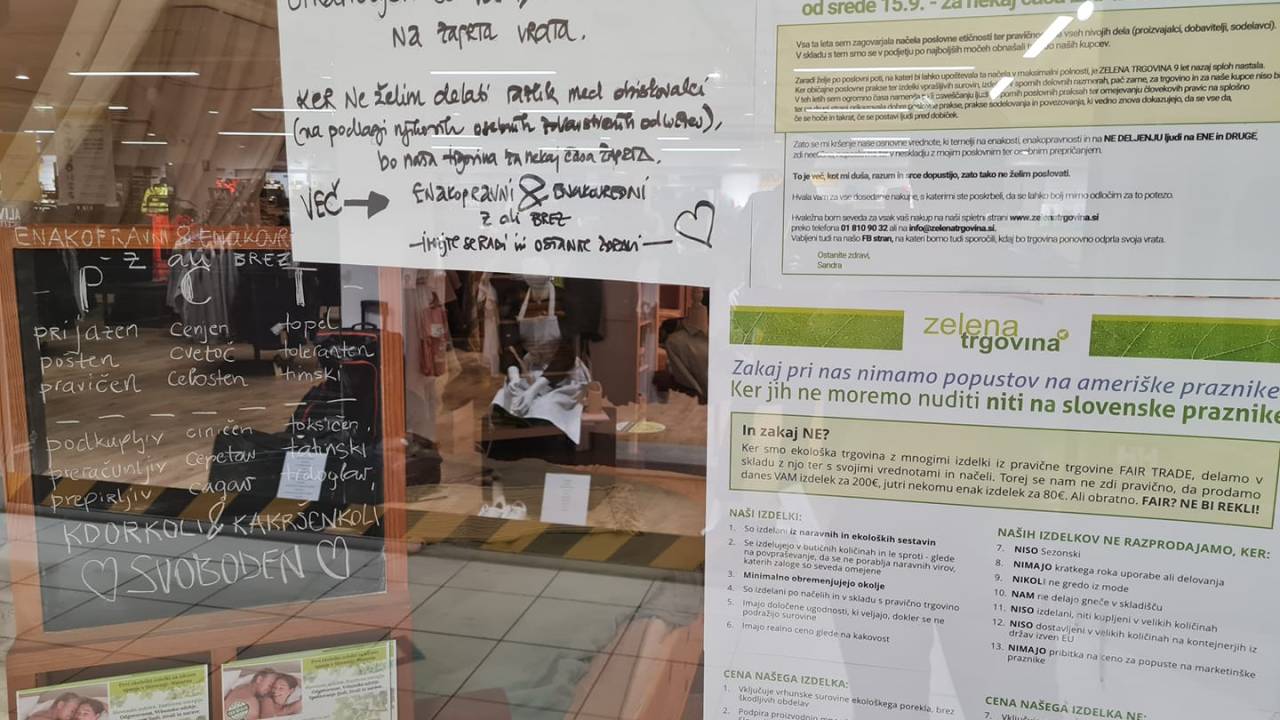 NA ZAPRTA VRATA.
KER NE želim delati razlik med obiskovalci
(na podlagi njihovih osebnih zdravstvenih odločitev),
bo naša trgovina za nekaj časa ZAPRTA.
VEČ → ENAKOPRAVNI & ENAKOVREDNI
Z ali BREZ
- IMEJTE SE RADI in OSTANITE ZDRAVI -
ENAKOPRAVNI & ENAKOVR
- Z ALI BREZ
P C T
prijazen cenjen topel
pošten cvetoč toleranten
pravičen celosten timski
podkupljiv ciničen toksičen,
preračunljiv cepetav
prepirljiv cagav trdoglav,
KDORKOLI & KAKRŠENKOLI
SVOBODEN
od srede 15.9. - za nekaj časa
Vsa ta leta sem zagovarjala načela poslovne etičnosti ter pravičnosti na vseh nivojih dela (proizvajalci, dobavitelji, sodelavci).
V skladu s tem smo se v podjetju po najboljših močeh obnašali do naših kupcev.
Zaradi želje po poslovni poti, na kateri bi lahko upoštevala ta načela v maksimalni polnosti, je ZELENA TRGOVINA 9 let nazaj sploh nastala.
Ker običajne poslovne prakse ter izdelki vprašljivih surovin, izdelani v spornih delovnih razmerah, pač zame, za trgovino in za naše kupce niso
če se hoče in takrat, če se postavi ljudi pred dobiček.
Zato se mi kršenje naše osnovne vrednote, ki temelji na enakosti, enakopravnosti in na NE DELJENJU ljudi na ENE in DRUGE,
zdi v neskladju z mojim poslovnim ter osebnim prepričanjem.
To je več, kot mi duša, razum in srce dopustijo, zato tako ne želim poslovati.
Hvala vam za vse dosedanje nakupe, s katerimi ste poskrbeli, da se lahko bolj mirno odločim za to potezo.
Hvaležna bom seveda za vsak vaš nakup na naši spletni strani www.zelenatrgovina.si
preko telefona 01 810 90 32 ali na info@zelenatrgovina.si.
Vabljeni tudi na našo FB stran, na kateri bomo tudi sporočili, kdaj bo trgovina ponovno odprla svoja vrata.
Ostanite zdravi,
Sandra
zelena
trgovina
Zakaj pri nas nimamo popustov na ameriške praznike
Ker jih ne moremo nuditi niti na slovenske praznike
In zakaj NE?
Ker smo ekološka trgovina z mnogimi izdelki iz pravične trgovine FAIR TRADE, delamo v
skladu z njo ter s svojimi vrednotami in načeli. Torej se nam ne zdi pravično, da prodamo
danes VAM izdelek za 200€, jutri nekomu enak izdelek za 80€. Ali obratno. FAIR? NE BI REKLI!
NAŠI IZDELKI:
1. So izdelani iz naravnih in ekoloških sestavin
2. Se izdelujejo v butičnih količinah in le sproti - glede
na povpraševanje, da se ne porablja naravnih virov,
katerih zaloge so seveda omejene
3. Minimalno obremenjujejo okolje
4. So izdelani po načelih in v skladu s pravično trgovino
5. Imajo določene ugodnosti, ki veljajo, dokler se ne
podražijo surovine
6. Imajo realno ceno glede na kakovost
NAŠIH IZDELKOV NE RAZPRODAJAMO, KER:
7. NISO Sezonski
8. NIMAJO kratkega roka uporabe ali delovanja
9. NIKOLI ne gredo iz mode
10. NAM ne delajo gneče v skladišču
11. NISO izdelani, niti kupljeni v velikih količinah
12. NISO dostavljeni v velikih količinah na kontejnerjih iz
držav izven EU
13. NIMAJO pribitka na ceno za popuste na marketinške
praznike
CENA NAŠEGA IZDELKA:
1. Vključuje vrhunske surovine ekološkega porekla, brez
škodljivih obdelav
2. Podpira proizvodnjo
CENA NAŠEGA IZDELKA NE:
7. Vključuje